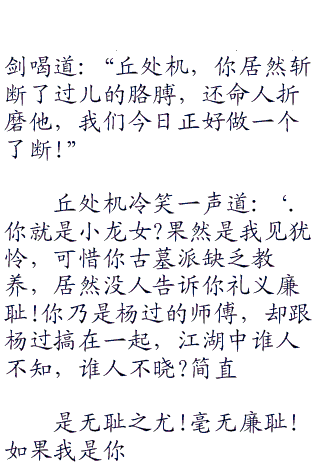 剑喝道:“丘处机,你居然斩
断了过儿的胳膊,还命人折
磨他,我们今日正好做一个
了断!”
丘处机冷笑一声道:‘.
你就是小龙女?果然是我见犹
怜,可惜你古墓派缺乏教
养,居然没人告诉你礼义廉
耻!你乃是杨过的师傅,却跟
杨过搞在一起,江湖中谁人
不知,谁人不晓?简直
是无耻之尤!毫无廉耻!
如果我是你